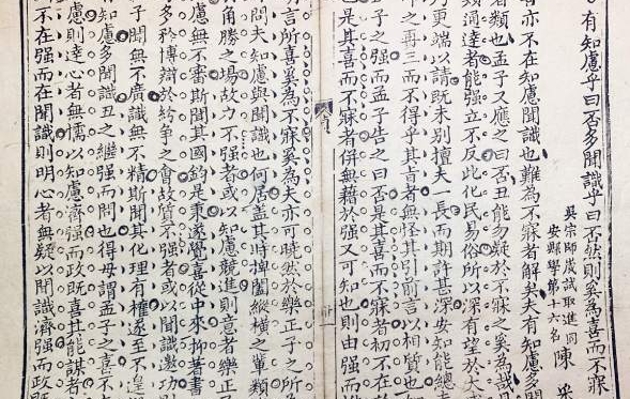 有知慮乎曰否多聞識乎曰不然則奚為喜而不寐
吳宗師歲試取進同
安縣學第十六名
陳
亦不在知慮聞識也難為不寐者解矣夫有知慮多聞
者類也孟子又應之曰否丑能勿疑於不寐之奚為哉
類通達者能強立不反此化民易俗所以深有望於大
更端以請既未別擅夫一長而期許甚深安知能總
之再三而不得乎其肯者無怪其引前言以相質也
子之強而孟子告之曰否是其喜而不寐者初不在於
也是其喜而不寐者併無藉於強又可知也則由強而
貞
言所喜奚為不寐奚為夫亦可曉然於樂正子之所
問夫知慮與聞識也何居蓋其時捭闔縱橫之輩類
角勝之場故力不強者或以知慮競進則意者樂正
慮無不審斯聞其國鈞是秉遂覺喜從中來抑著書
多矜博辯於紛爭之會故質不強者或以聞識邀功
子聞無不廣識無不精斯聞其化理有權遂至不遑
有知慮多聞識丑之繼強而問也得毋謂孟子之喜不
慮則達心者無懦以知慮濟強而政既喜其能謀者
不在強而在聞識則明心者無疑以聞識濟強而政既